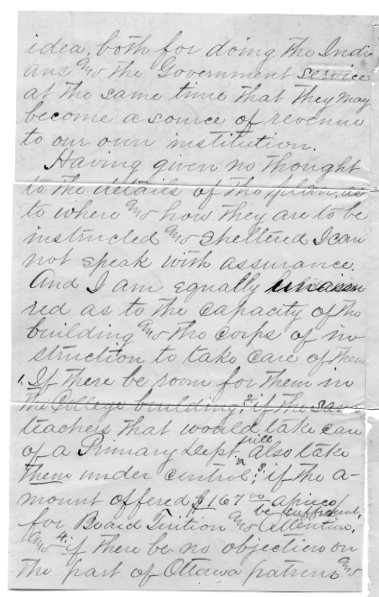 idea, both for doing the Indi
ans and the Government service
at the same time that they may
become a source of revenue
to our own institution.
Having given no thought
to the details of the plan, as
to where and how they are to be
instructed and sheltered I can
not speak with assurance.
And I am equally unassu
red as to the capacity of the
building and the corps of in
struction to take care of them
1. If there be room for them in
the College building; 2. if the same
teachers that would take care
of a Primary Dept. will also take
them under control; 3. if the a-
mount offered $167.00 apiece, be sufficient,
for Board Tuition and attention,
and 4. if there be no objection on
the part of Ottawa patrons and